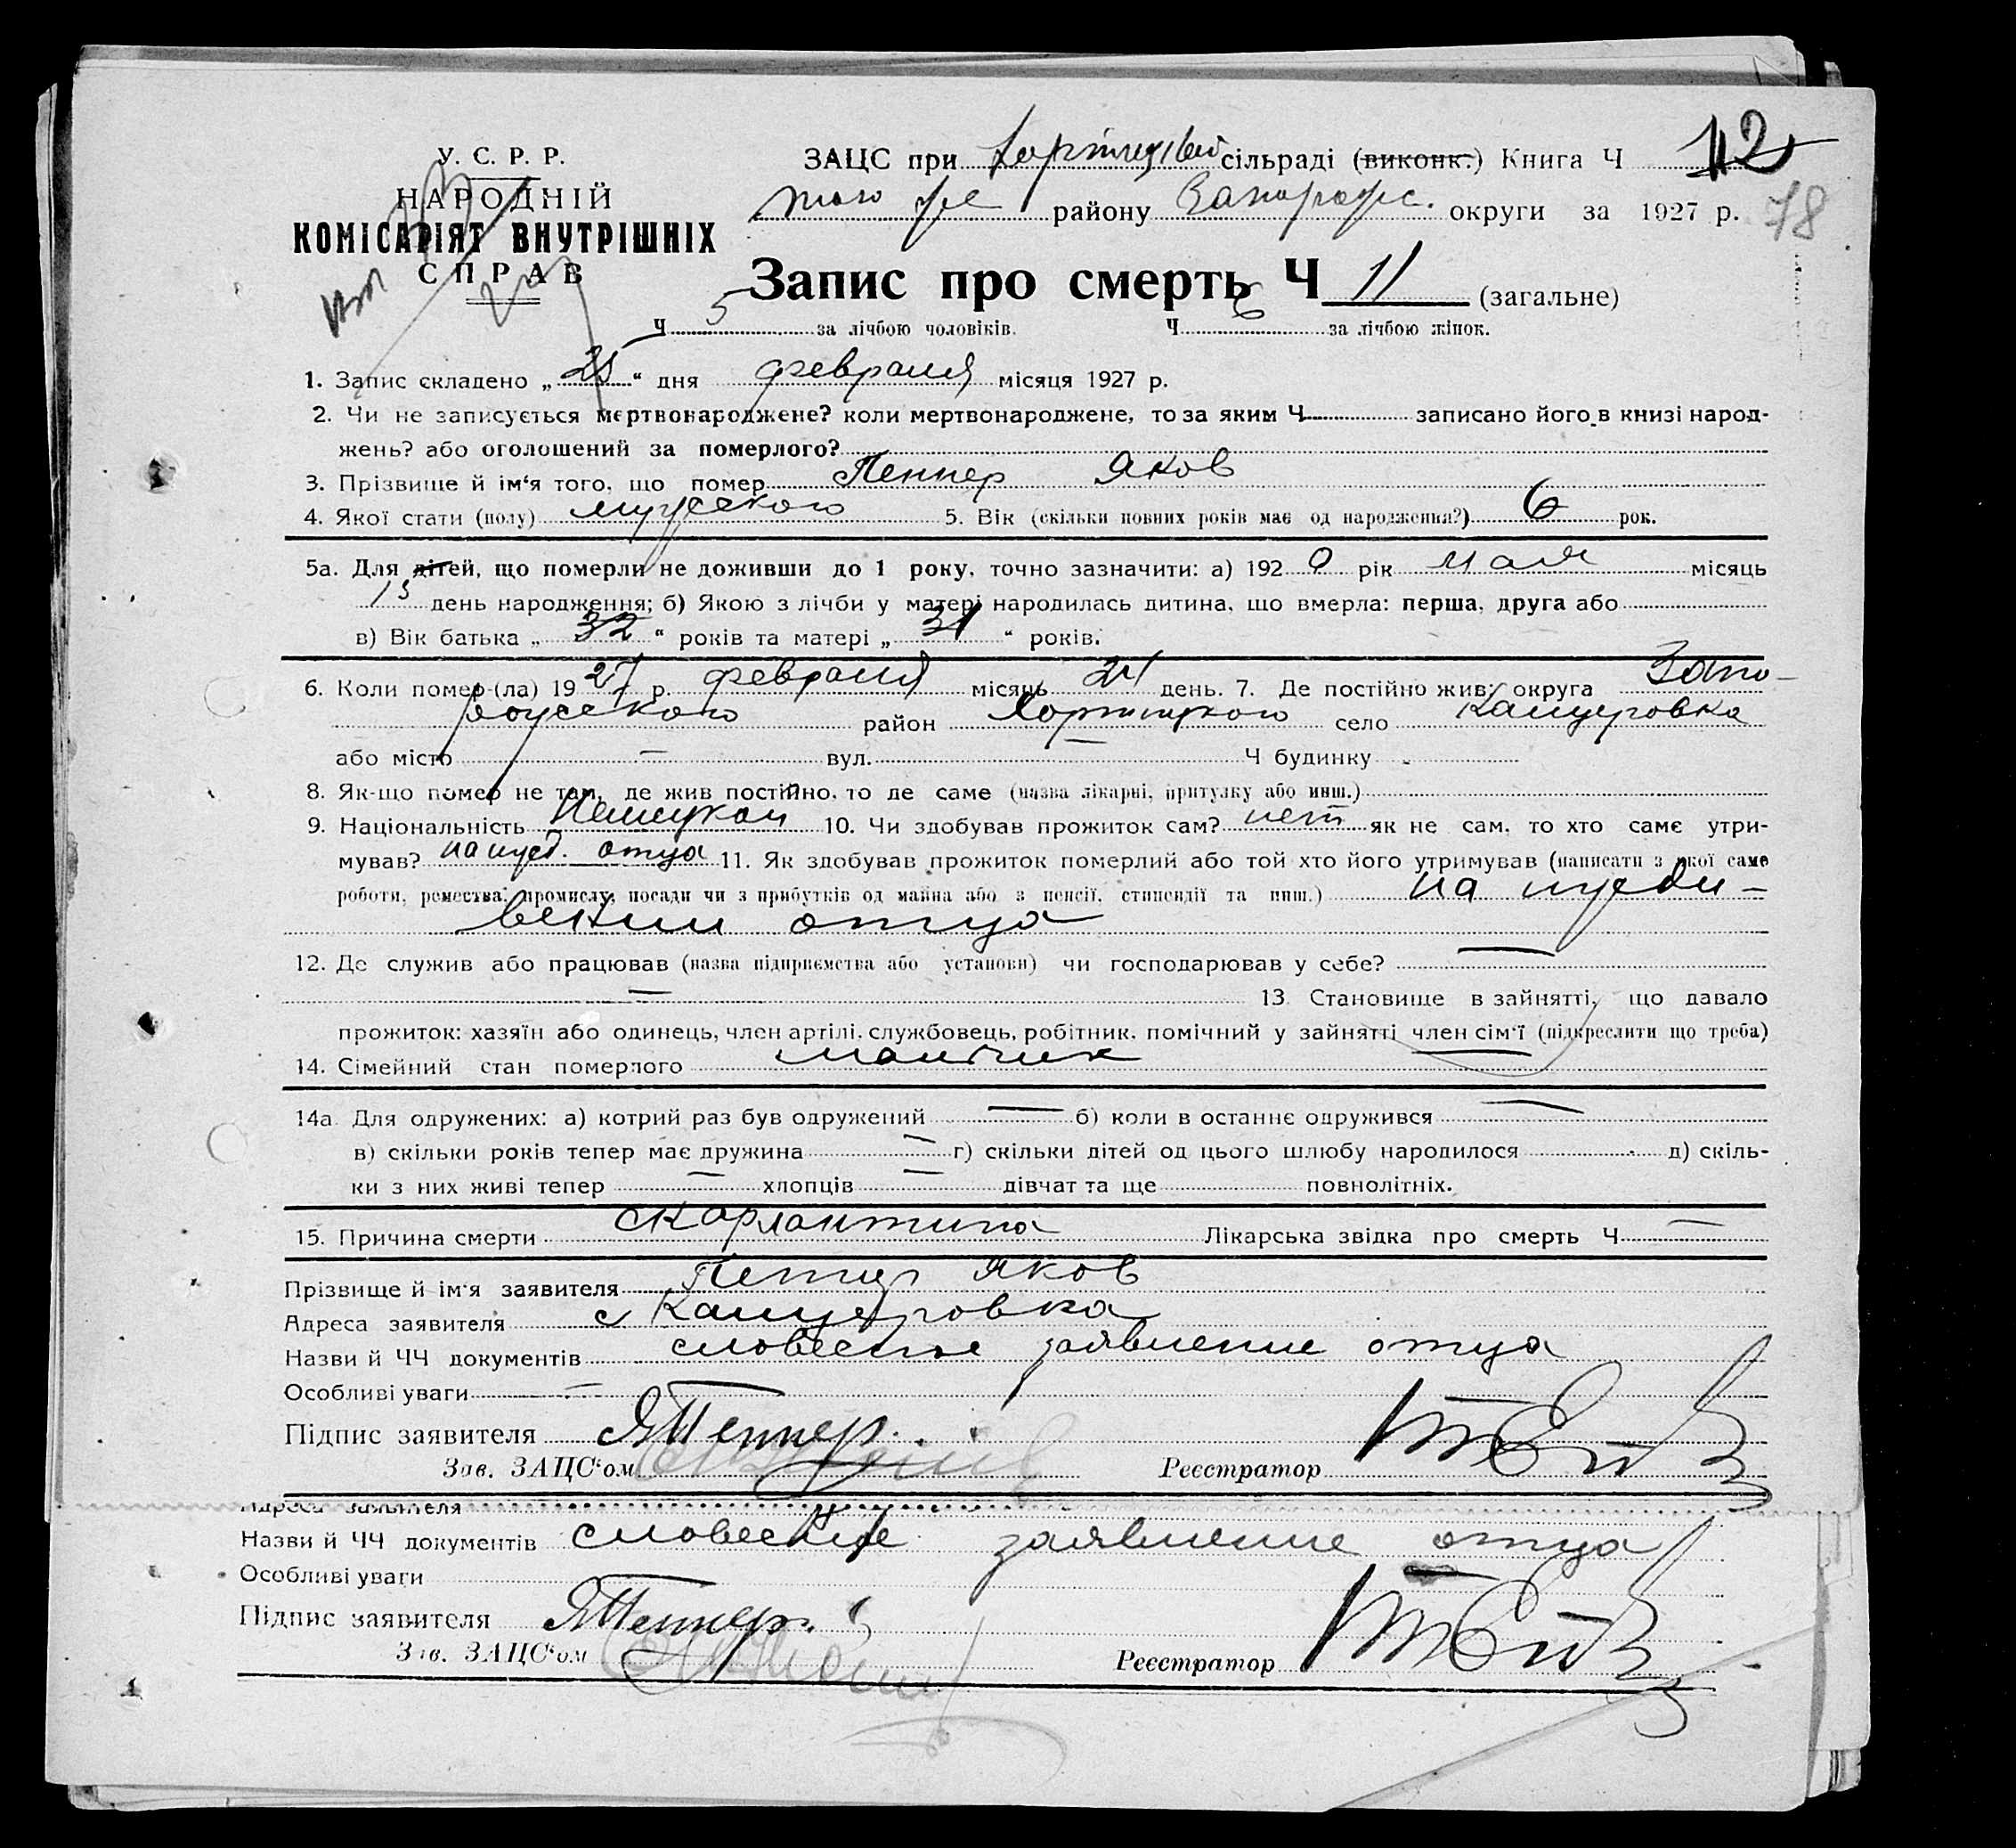 У. С. Р. Р.
НАРОДНІЙ
КОМІСАРІЯТ ВНУТРІШНІХ
СПРАВ
ЗАЦС при Хортицькій сільраді (виконк.) Книга Ч 12
того же району Запорожс. округи за 1927 р. 78
Запис про смерть Ч 11 (загальне)
Ч 5 за лічбою чоловіків. Ч 6 за лічбою жінок.
1. Запис складено „ 25 “ дня февраля місяця 1927 р.
2. Чи не записується мертвонароджене? коли мертвонароджене, то за яким Ч записано його в книзі народ-
жень? або оголошений за померлого?
3. Прізвище й ім‘я того, що помер Пеннер Яков
4. Якої стати (полу) мужского 5. Вік (скільки повних років має од народження?) 6 рок.
5а. Для дітей, що померли не доживши до 1 року, точно зазначити: а) 192 0 рік мая місяць
15 день народження; б) Якою з лічби у матері народилась дитина, що вмерла: перша, друга або
в) Вік батька „ 32 “ років та матері „ 31 “ років.
6. Коли помер-(ла) 19 27 р. февраля місяць 24 день. 7. Де постійно жив: округа Запо-
рожского район Хортицкого село Канцеровка
або місто — вул. — Ч будинку -
8. Як-що помер не там, де жив постійно, то де саме (назва лікарні, притулку або инш.)
9. Національність Немецкой 10. Чи здобував прожиток сам? нет як не сам, то хто саме утри-
мував? на ижд. отца 11. Як здобував прожиток померлий або той хто його утримував (написати з якої саме
роботи, ремества, промислу, посади чи з прибутків од майна або з пенсії, стипендії та инш.) на ижди-
вении отца
12. Де служив або працював (назва підприємства або установи) чи господарював у себе? —
— 13. Становище в зайнятті, що давало
прожиток: хазяїн або одинець, член артілі, службовець, робітник, помічний у зайнятті член сім‘ї (підкреслити що треба)
14. Сімейний стан померлого мальчик
14а. Для одружених: а) котрий раз був одружений — б) коли в останнє одружився —
в) скільки років тепер має дружина — г) скільки дітей од цього шлюбу народилося д) скіль-
ки з них живі тепер — хлопців — дівчат та ще повнолітніх.
15. Причина смерти скарлантина Лікарська звідка про смерть Ч —
Прізвище й ім‘я заявителя Пеннер Яков
Адреса заявителя с Канцеровка
Назви й ЧЧ документів словесное заявление отца
Особливі уваги —
Підпис заявителя ЯПеннер.
Зав. ЗАЦС‘ом Реєстратор
Адреса заявителя
Назви й ЧЧ документів словесное заявление отца
Особливі уваги
Підпис заявителя ЯПеннер.
Зав. ЗАЦС‘ом Реєстратор